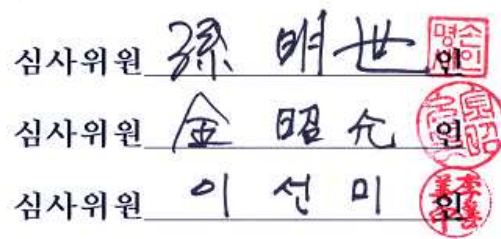 심사위원 孫 明 世 인
심사위원 金 昭 允 인
심사위원 이 선 미 인